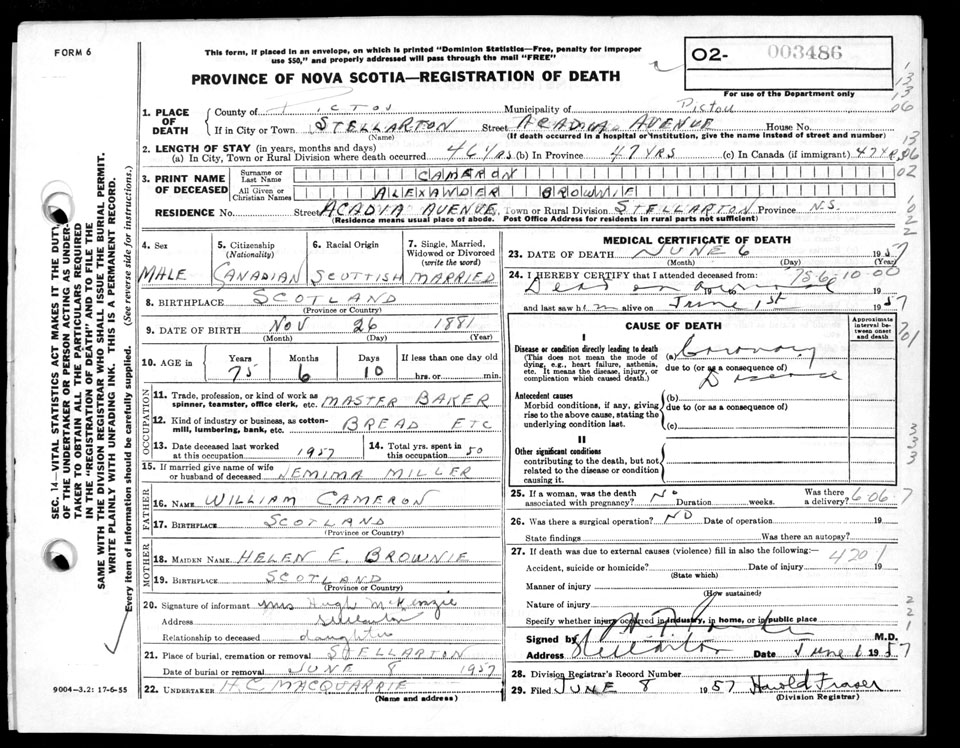 FORM 6
This form, if placed in an envelope, on which is printed "Dominion Statistics—Free, penalty for improper
use $50," and properly addressed will pass through the mail "FREE"
O2- 003486
For use of the Department only
PROVINCE OF NOVA SCOTIA—REGISTRATION OF DEATH
1. PLACE OF DEATH County of PICTOU Municipality of Pictou
If in City or Town STELLARTON Street ACADIA AVENUE House No.
(Name) (If death occurred in a hospital or institution, give the name instead of street and number)
2. LENGTH OF STAY (in years, months and days)
(a) In City, Town or Rural Division where death occurred 46 YRS (b) In Province 47 YRS (c) In Canada (if immigrant) 47 YRS
3. PRINT NAME OF DECEASED Surname or Last Name CAMERON
All Given or Christian Names ALEXANDER BROWNIE
RESIDENCE No. Street ACADIA AVENUE, Town or Rural Division STELLARTON Province N.S.
(Residence means usual place of abode. Post Office Address for residents in rural parts not sufficient)
SEC. 14—VITAL STATISTICS ACT MAKES IT THE DUTY
OF THE UNDERTAKER OR PERSON ACTING AS UNDER-
TAKER TO OBTAIN ALL THE PARTICULARS REQUIRED
IN THE "REGISTRATION OF DEATH" AND TO FILE THE
SAME WITH THE DIVISION REGISTRAR WHO SHALL ISSUE THE BURIAL PERMIT.
WRITE PLAINLY WITH UNFADING INK. THIS IS A PERMANENT RECORD.
Every item of information should be carefully supplied. (See reverse side for instructions.)
4. Sex 5. Citizenship (Nationality) 6. Racial Origin 7. Single, Married, Widowed or Divorced (write the word)
MALE CANADIAN SCOTTISH MARRIED
8. BIRTHPLACE SCOTLAND
(Province or Country)
9. DATE OF BIRTH NOV 26 1881
(Month) (Day) (Year)
10. AGE in Years Months Days If less than one day old
75 6 10 hrs. or min.
OCCUPATION
11. Trade, profession, or kind of work as spinner, teamster, office clerk, etc. MASTER BAKER
12. Kind of industry or business, as cotton-mill, lumbering, bank, etc. BREAD ETC
13. Date deceased last worked at this occupation 1957 14. Total yrs. spent in this occupation 50
15. If married give name of wife or husband of deceased JEMIMA MILLER
FATHER
16. NAME WILLIAM CAMERON
17. BIRTHPLACE SCOTLAND
(Province or Country)
MOTHER
18. MAIDEN NAME HELEN E. BROWNIE
19. BIRTHPLACE SCOTLAND
(Province or Country)
20. Signature of informant Mrs Hugh McKenzie
Address Stellarton
Relationship to deceased daughter
21. Place of burial, cremation or removal STELLARTON
Date of burial or removal JUNE 8 1957
22. UNDERTAKER H.C. MACQUARRIE
(Name and address)
9004-3.2: 17-6-55
MEDICAL CERTIFICATE OF DEATH
23. DATE OF DEATH JUNE 6 1957
(Month) (Day) (Year)
24. I HEREBY CERTIFY that I attended deceased from: 75-6-10-00
Dead on arrival 19 to 19
and last saw h im alive on June 1st 1957
CAUSE OF DEATH
Approximate interval between onset and death
I
Disease or condition directly leading to death (a) Coronary
(This does not mean the mode of dying, e.g., heart failure, asthenia, etc. It means the disease, injury, or complication which caused death.)
due to (or as a consequence of)
Disease
Antecedent causes (b)
Morbid conditions, if any, giving rise to the above cause, stating the underlying condition last.
due to (or as a consequence of)
(c)
II
Other significant conditions
contributing to the death, but not related to the disease or condition causing it.
25. If a woman, was the death associated with pregnancy? No Duration weeks. Was there a delivery? 606-7
26. Was there a surgical operation? NO Date of operation 19
State findings Was there an autopsy?
27. If death was due to external causes (violence) fill in also the following:— 4201
Accident, suicide or homicide? Date of injury 19
(State which)
Manner of injury
(How sustained)
Nature of injury
Specify whether injury occurred in industry, in home, or in public place
Signed by M.D.
Address Stellarton Date June 6 1957
28. Division Registrar's Record Number
29. Filed JUNE 8 1957 Harold Fraser
(Division Registrar)